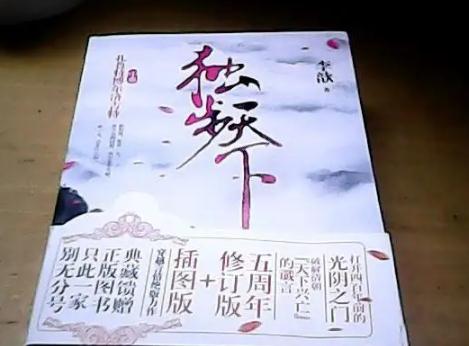 独步天下
李歆
著
打开四百年前的
光阴之门
破解清朝
“天下兴亡”
的谶言
五周年
修订版
+
插图版
穿越言情绝版力作
典藏馈赠
正版图书
只此一家
别无分号